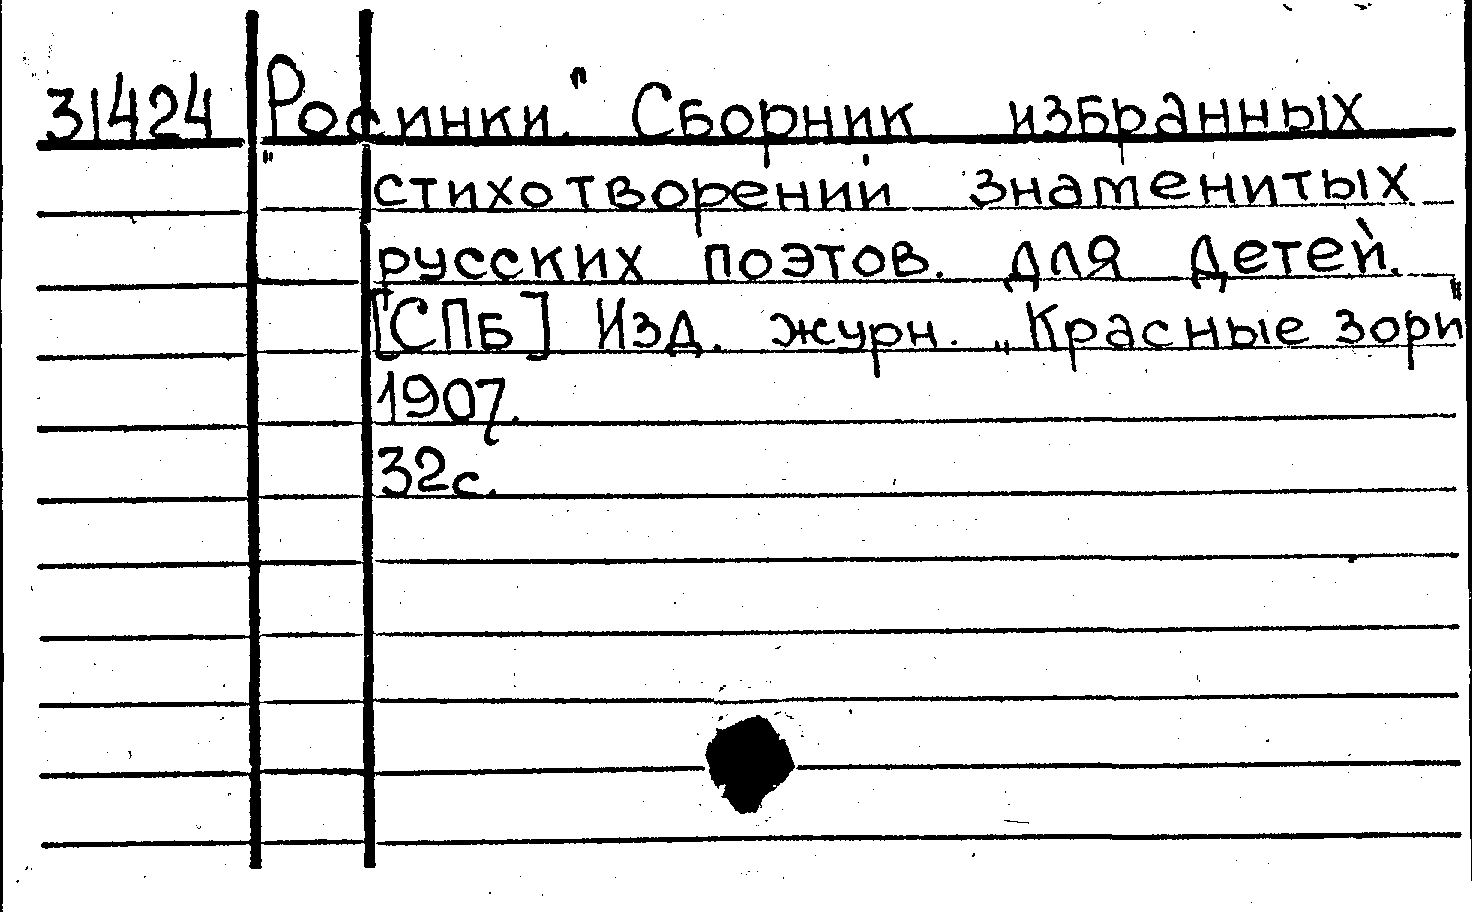 31424 „Росинки." Сборник избранных
стихотворений знаменитых
русских поэтов. для детей.
[СПб] Изд. журн. „Красные зори"
1907.
32с.